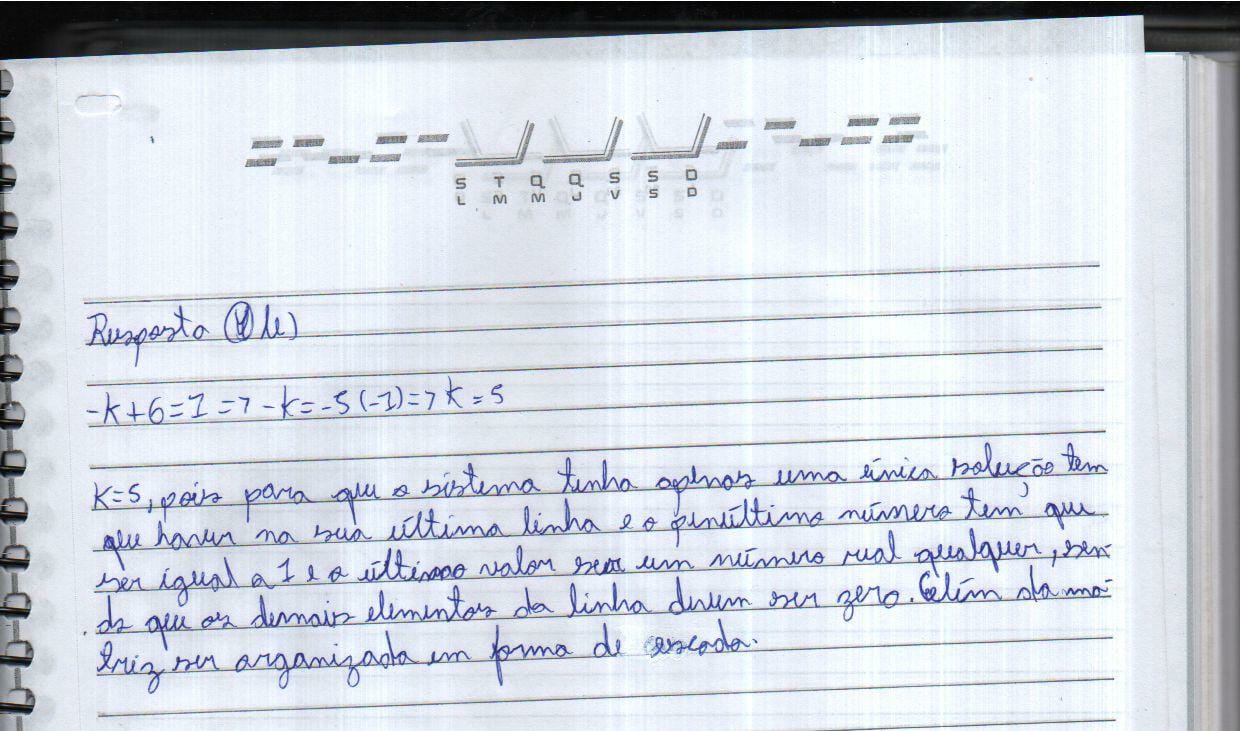 S T Q Q S S D
L M M J V S D
Resposta b)
-K+6=1=7-K=-5(-1)=7K=5
K=5, pois para que o sistema tenha apenas uma única solução tem
que haver na sua última linha e o penúltimo número tem que
ser igual a 1 e o último valor ser um número real qualquer, sen-
do que os demais elementos da linha devem ser zero. Além da ma-
triz ser organizada em forma de escada.